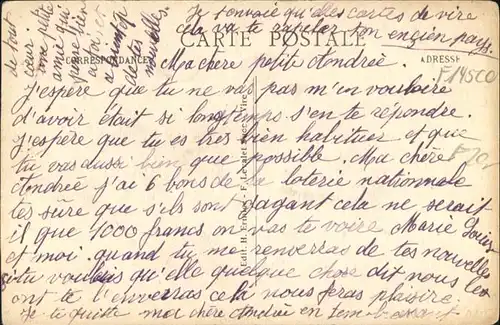 Je t'envoie qu'elles cartes de vire
cela va te rapeler ton encien pays
CARTE POSTALE
CORRESPONDANCE
ADRESSE
Ma chère petite Andrée.
J'espère que tu ne vas pas m'en vouloire
d'avoir était si longtemps s'en te répondre.
J'espère que tu es très bien habituer et que
tu vas aussi bien que possible. Ma chère
Andrée j'ai 6 bons de la loterie nationnale
tes sûre que s'ils sont gagant cela ne serait
il que 1000 francs on vas te voire Marie Louise
et moi quand tu me renverras de tes nouvelles
si tu voulais qu'elle quelque chose dit nous les
ont te l'enverras cela nous feras plaisire
Je te quitte ma chère Andrée en
de tout
cœur
une petite
amie qui
pense bien
a toi et
de tes
nouvelles